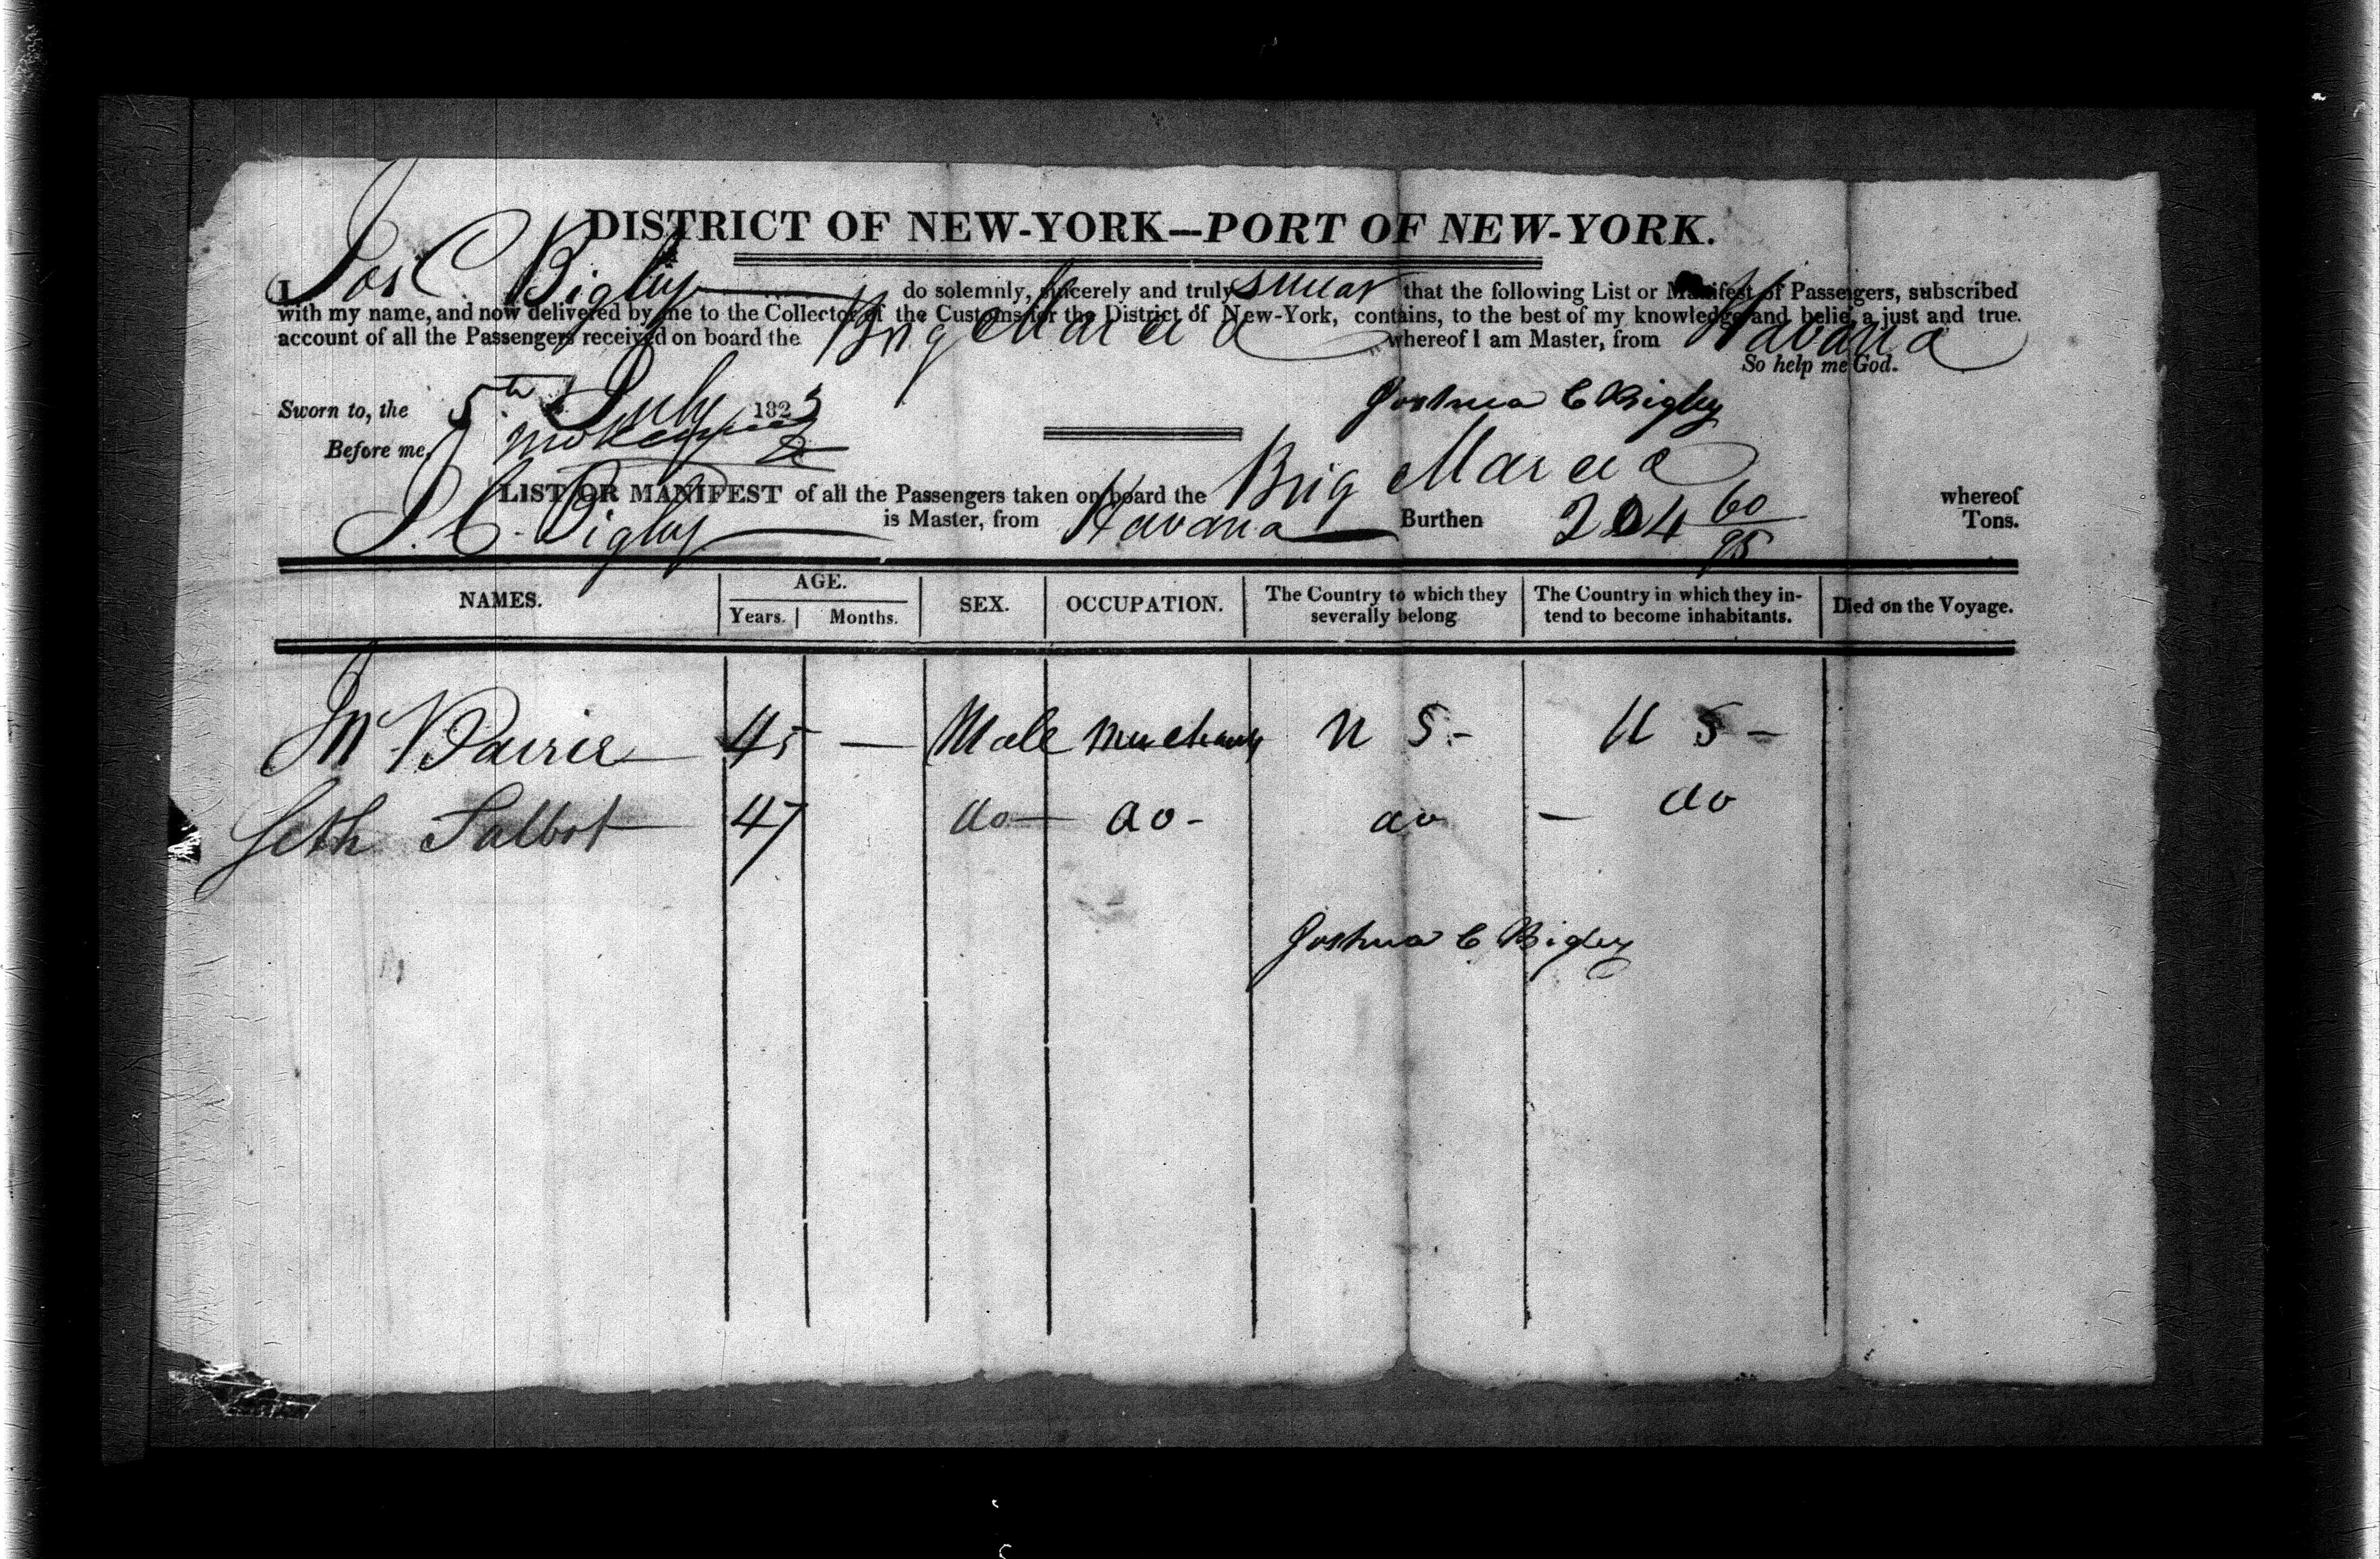 DISTRICT OF NEW-YORK—PORT OF NEW-YORK.
I Jos C Bigley do solemnly, sincerely and truly swear that the following List or Manifest of Passengers, subscribed
with my name, and now delivered by me to the Collector of the Customs for the District of New-York, contains, to the best of my knowledge and belief, a just and true
account of all the Passengers received on board the Brig Marcia whereof I am Master, from Havana
So help me God.
Sworn to, the 5th July 1823 Joshua C Bigley
Before me,
LIST OR MANIFEST of all the Passengers taken on board the Brig Marcia whereof
J. C. Bigley is Master, from Havana Burthen 204 60/95 Tons.
NAMES. AGE. SEX. OCCUPATION. The Country to which they severally belong The Country in which they intend to become inhabitants. Died on the Voyage.
Years. Months.
Mr 45 — Male Merchant U S - U S -
Seth Talbot 47 do do - do — do
Joshua C Bigley